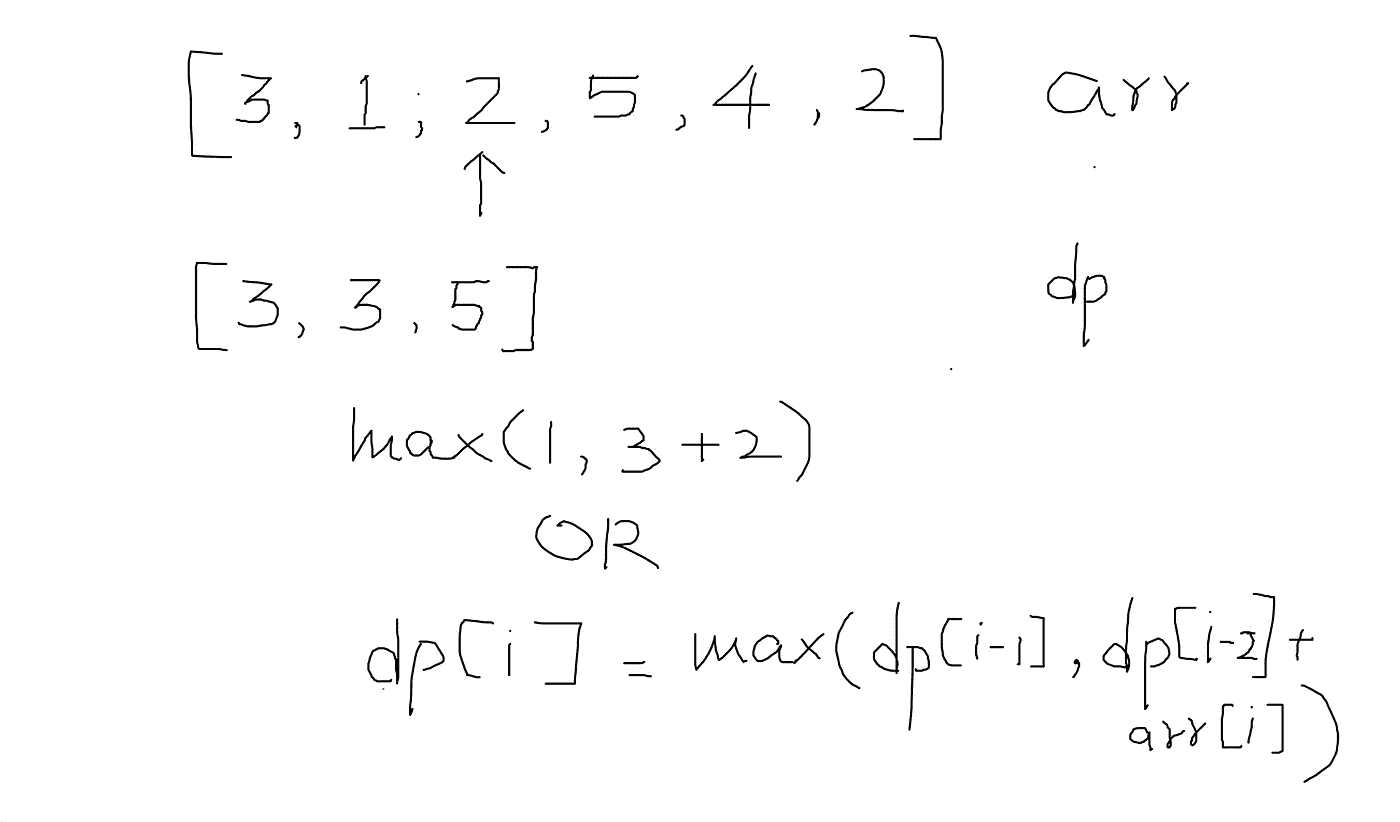 [3, 1; 2, 5, 4, 2] arr
↑
[3, 3, 5] dp
max(1, 3+2)
OR
dp[i] = max(dp[i-1], dp[i-2]+
arr[i])